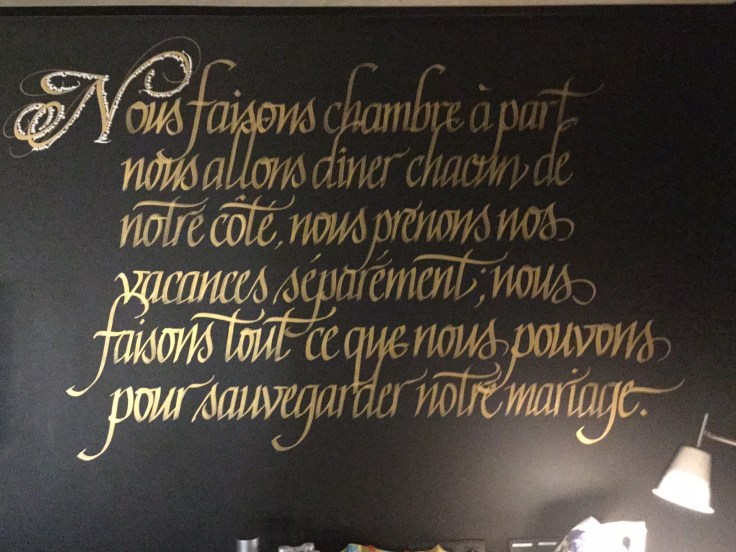 Nous faisons chambre à part
nous allons diner chacun de
notre côté, nous prenons nos
vacances séparément; nous
faisons tout ce que nous pouvons
pour sauvegarder notre mariage.